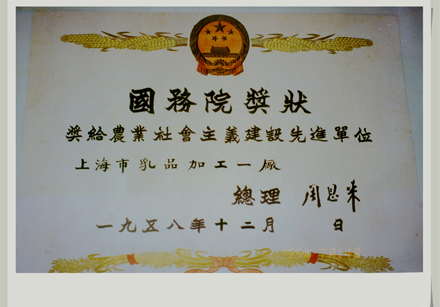 國務院獎狀
獎給農業社會主義建設先進單位
上海市乳品加工一廠
總理 周恩来
一九五八年十二月 日